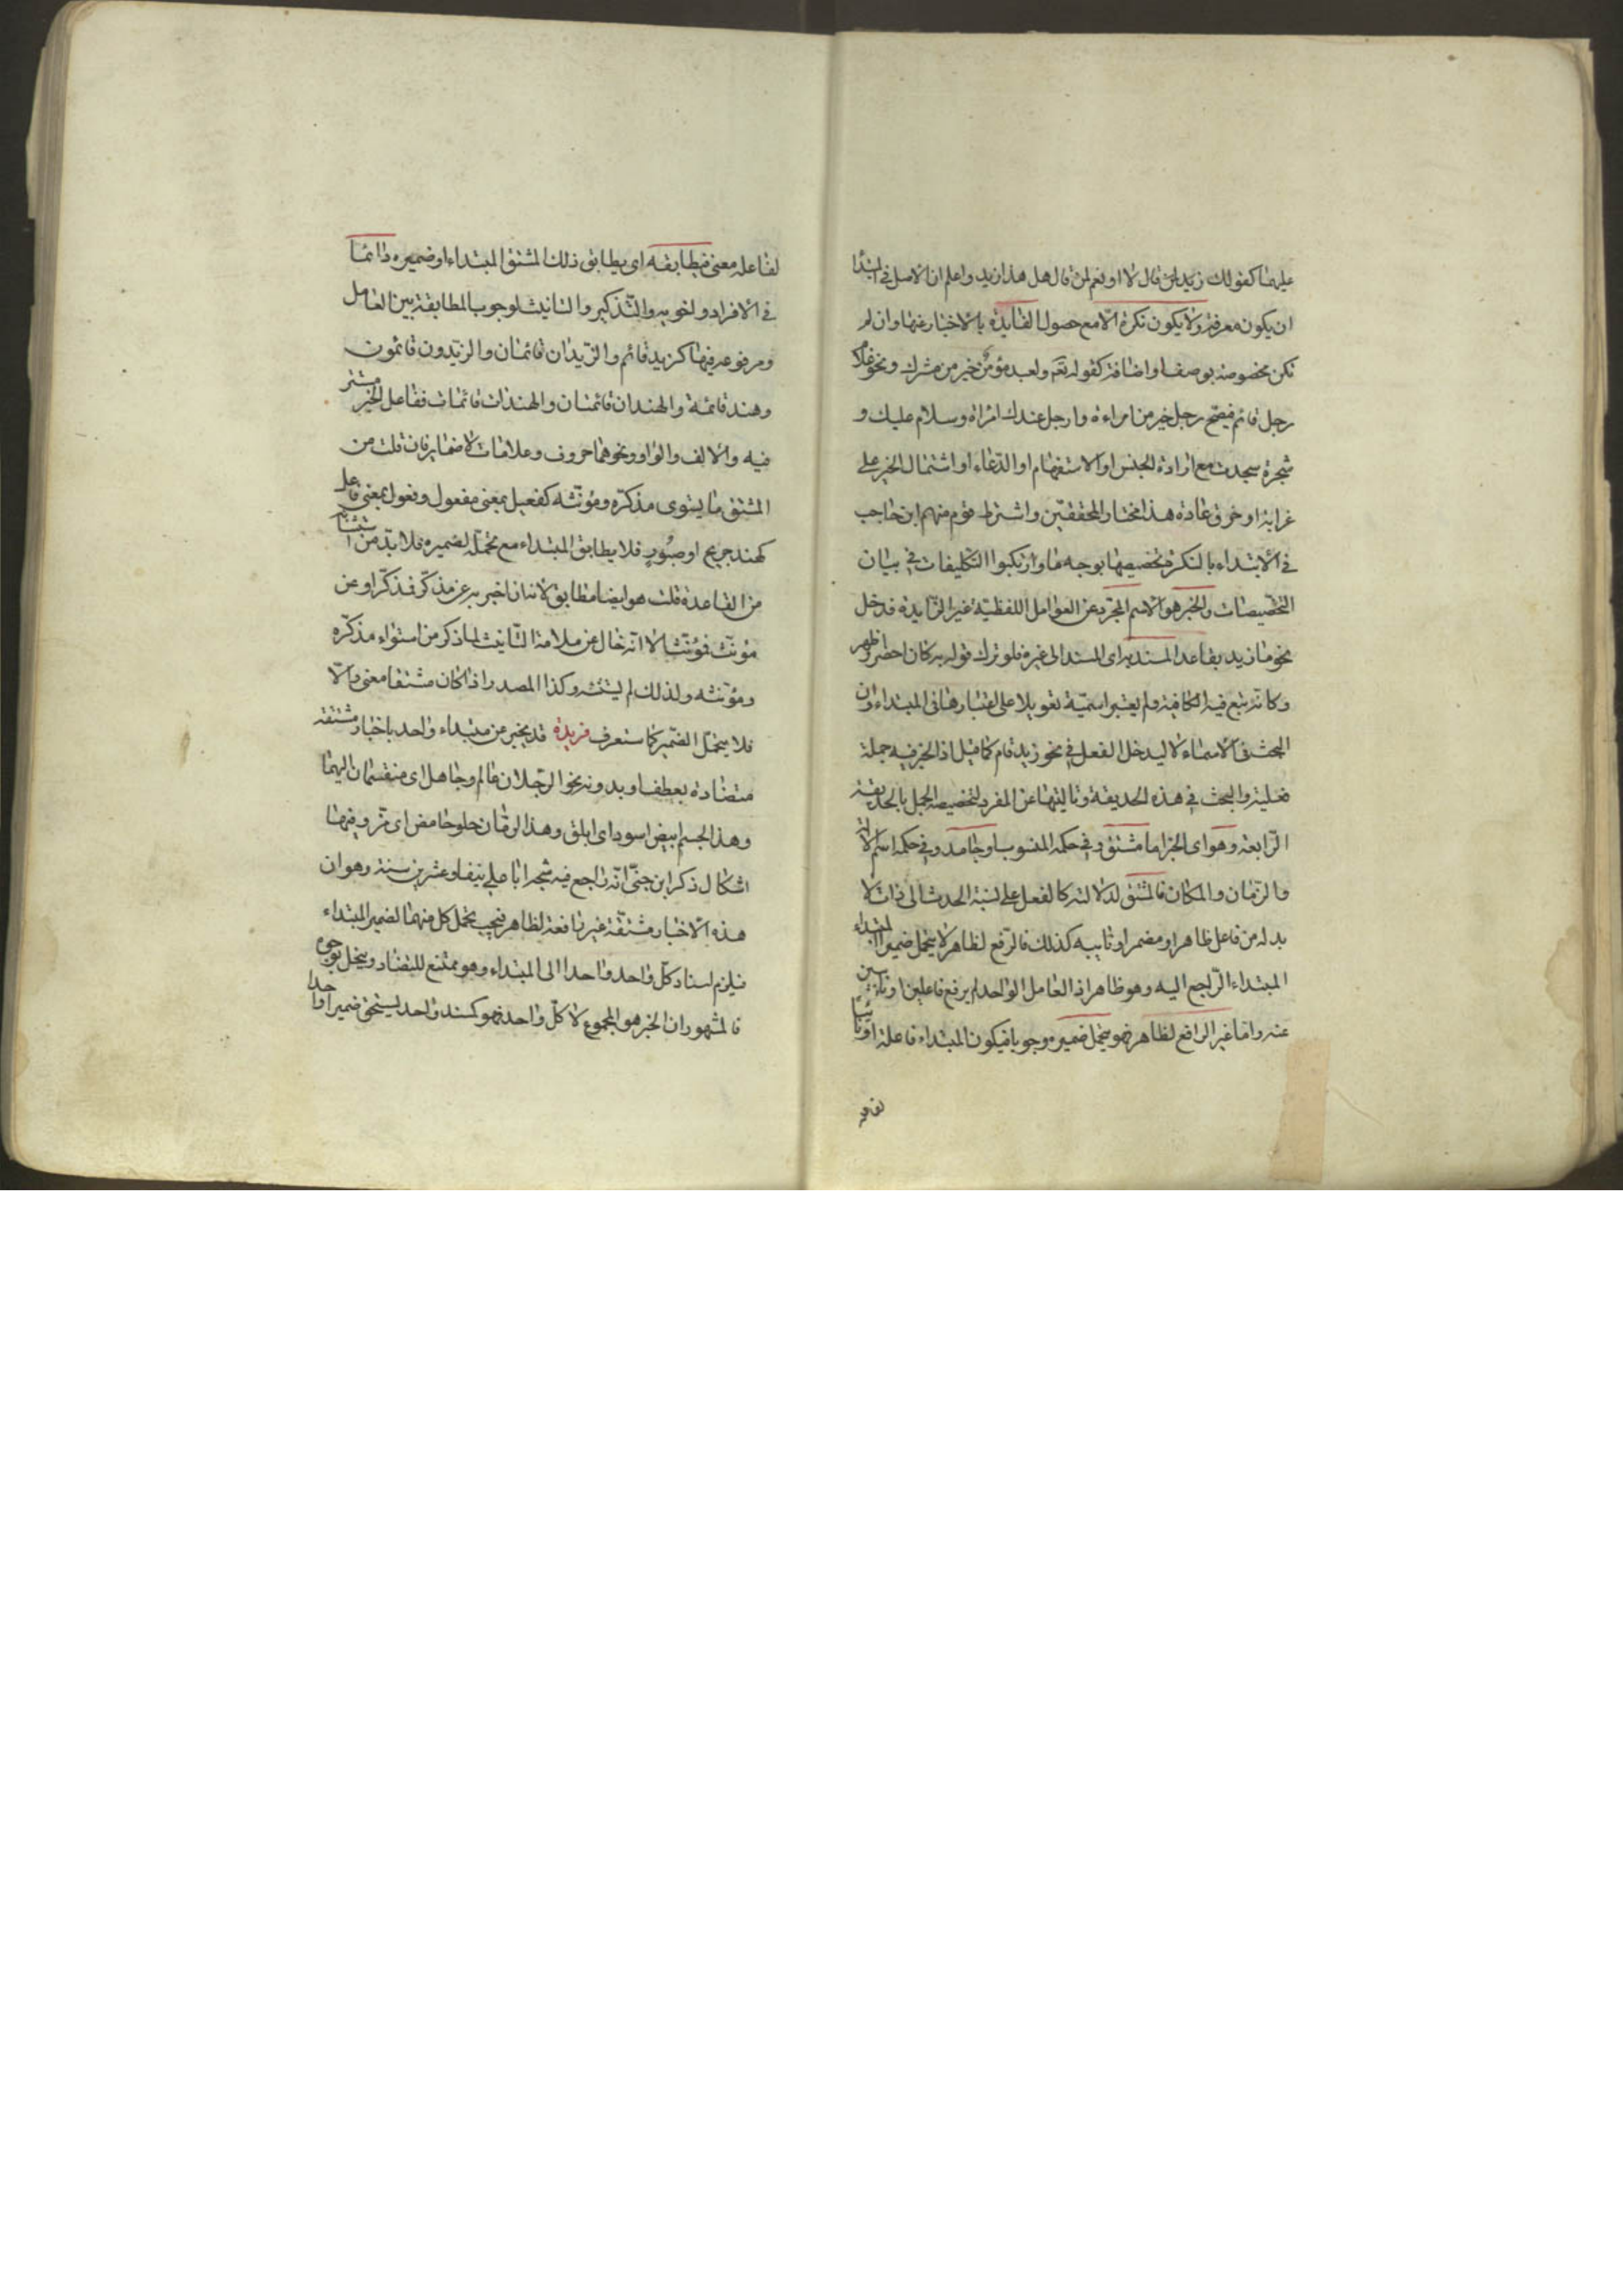 عليهما كقولك زيد لمن قال لا او نعم لمن قال هل هذا زيد واعلم ان الاصل في المبتدأ
ان يكون معرفة ولا يكون نكرة الا مع حصول الفايدة بالاخبار عنها وان لم
تكن مخصوصة بوصف او اضافة كقوله تعم ولعبد مؤمن خير من مشرك ونحو غلام
رجل قائم فيصح رجل خير من امراءة وارجل عندك ام امراة وسلام عليك و
شجرة سجدت مع ارادة الجنس او الاستفهام او الدعاء او اشتمال الخبر على
غرابة او خرق عادة هذا مختار المحققين واشترط قوم منهم ابن حاجب
في الابتداء بالنكرة تخصيصها بوجه ما وارتكبوا التكليفات في بيان
التخصيصات والخبر هو الاسم المجرد عن العوامل اللفظية غير الزايدة فدخل
نحو ما زيد بقاعد المسند به اى المسند الى غيره فلو ترك قوله به كان احضر واظهر
وكانه تبع فيه الكافية ولم يعتبر اسمية تعويلا على اعتبارها في المبتداء وان
البحث في الاسماء لا ليدخل الفعل في نحو زيد قام كما قيل اذ الخبر فيه جملة
فعلية والبحث في هذه الحديقة وتاليتها عن المفرد لتخصيصه الجمل بالحديقة
الرابعة وهو اى الخبر اما مشتق وفي حكمه المنسوب او جامد وفي حكمه اسم الالة
والزمان والمكان فالمشتق لدلالته كالفعل على نسبة الحدث الى ذات لا
بد له من فاعل ظاهر او مضمر او نايبه كذلك فالرفع لظاهر لا يتحمل ضمير المبتداء
المبتداء الراجع اليه وهو ظاهر اذ العامل الواحد لم يرفع فاعلين او نايبين
عنه واما غير الرافع لظاهر فهو يتحمل ضميره وجوبا فيكون المبتداء فاعلا او نايبا
لفاعله
لفاعله معنى فيطابقه اى يطابق ذلك المشتق المبتداء او ضميره دائما
في الافراد واخويه والتذكير والتانيث لوجوب المطابقة بين العامل
ومرفوعه فيهما كزيد قائم والزيدان قائمان والزيدون قائمون
وهند قائمة والهندان قائمتان والهندات قائمات ففاعل الخبر مستتر
فيه والالف والواو ونحوهما حروف وعلامات لا ضماير فان قلت من
المشتق ما يستوى مذكره ومؤنثه كفعيل بمعنى مفعول وفعول بمعنى فاعل
كهند جريح او صبور فلا يطابق المبتداء مع تحمله لضميره فلا بد من استثنائه
من القاعدة قلت هو ايضا مطابق لانه ان اخبر به عن مذكر فمذكر او عن
مؤنث فمؤنث الا انه خال عن علامة التانيث لما ذكر من استواء مذكره
ومؤنثه ولذلك لم يستثنه وكذا المصدر اذا كان مشتقا معنى والا
فلا يتحمل الضمير كما ستعرف فريدة قد يخبر عن مبتداء واحد باخبار مشتقة
متضادة بعطف او بدونه نحو الرجلان عالم وجاهل اى منقسمان اليهما
وهذا الجسم ابيض اسود اى ابلق وهذا الرمان حلو حامض اى مز وفيها
اشكال ذكر ابن جنى انه راجع فيه شيخه ابا على نيفا وعشرين سنة وهو ان
هذه الاخبار مشتقة غير رافعة لظاهر فيجب تحمل كل منهما لضمير المبتداء
فيلزم اسناد كل واحد واحد الى المبتداء وهو ممتنع للتضاد وينحل بوجوه
فالمشهور ان الخبر هو المجموع لا كل واحد فهو كمسند واحد يستحق ضميرا واحدا